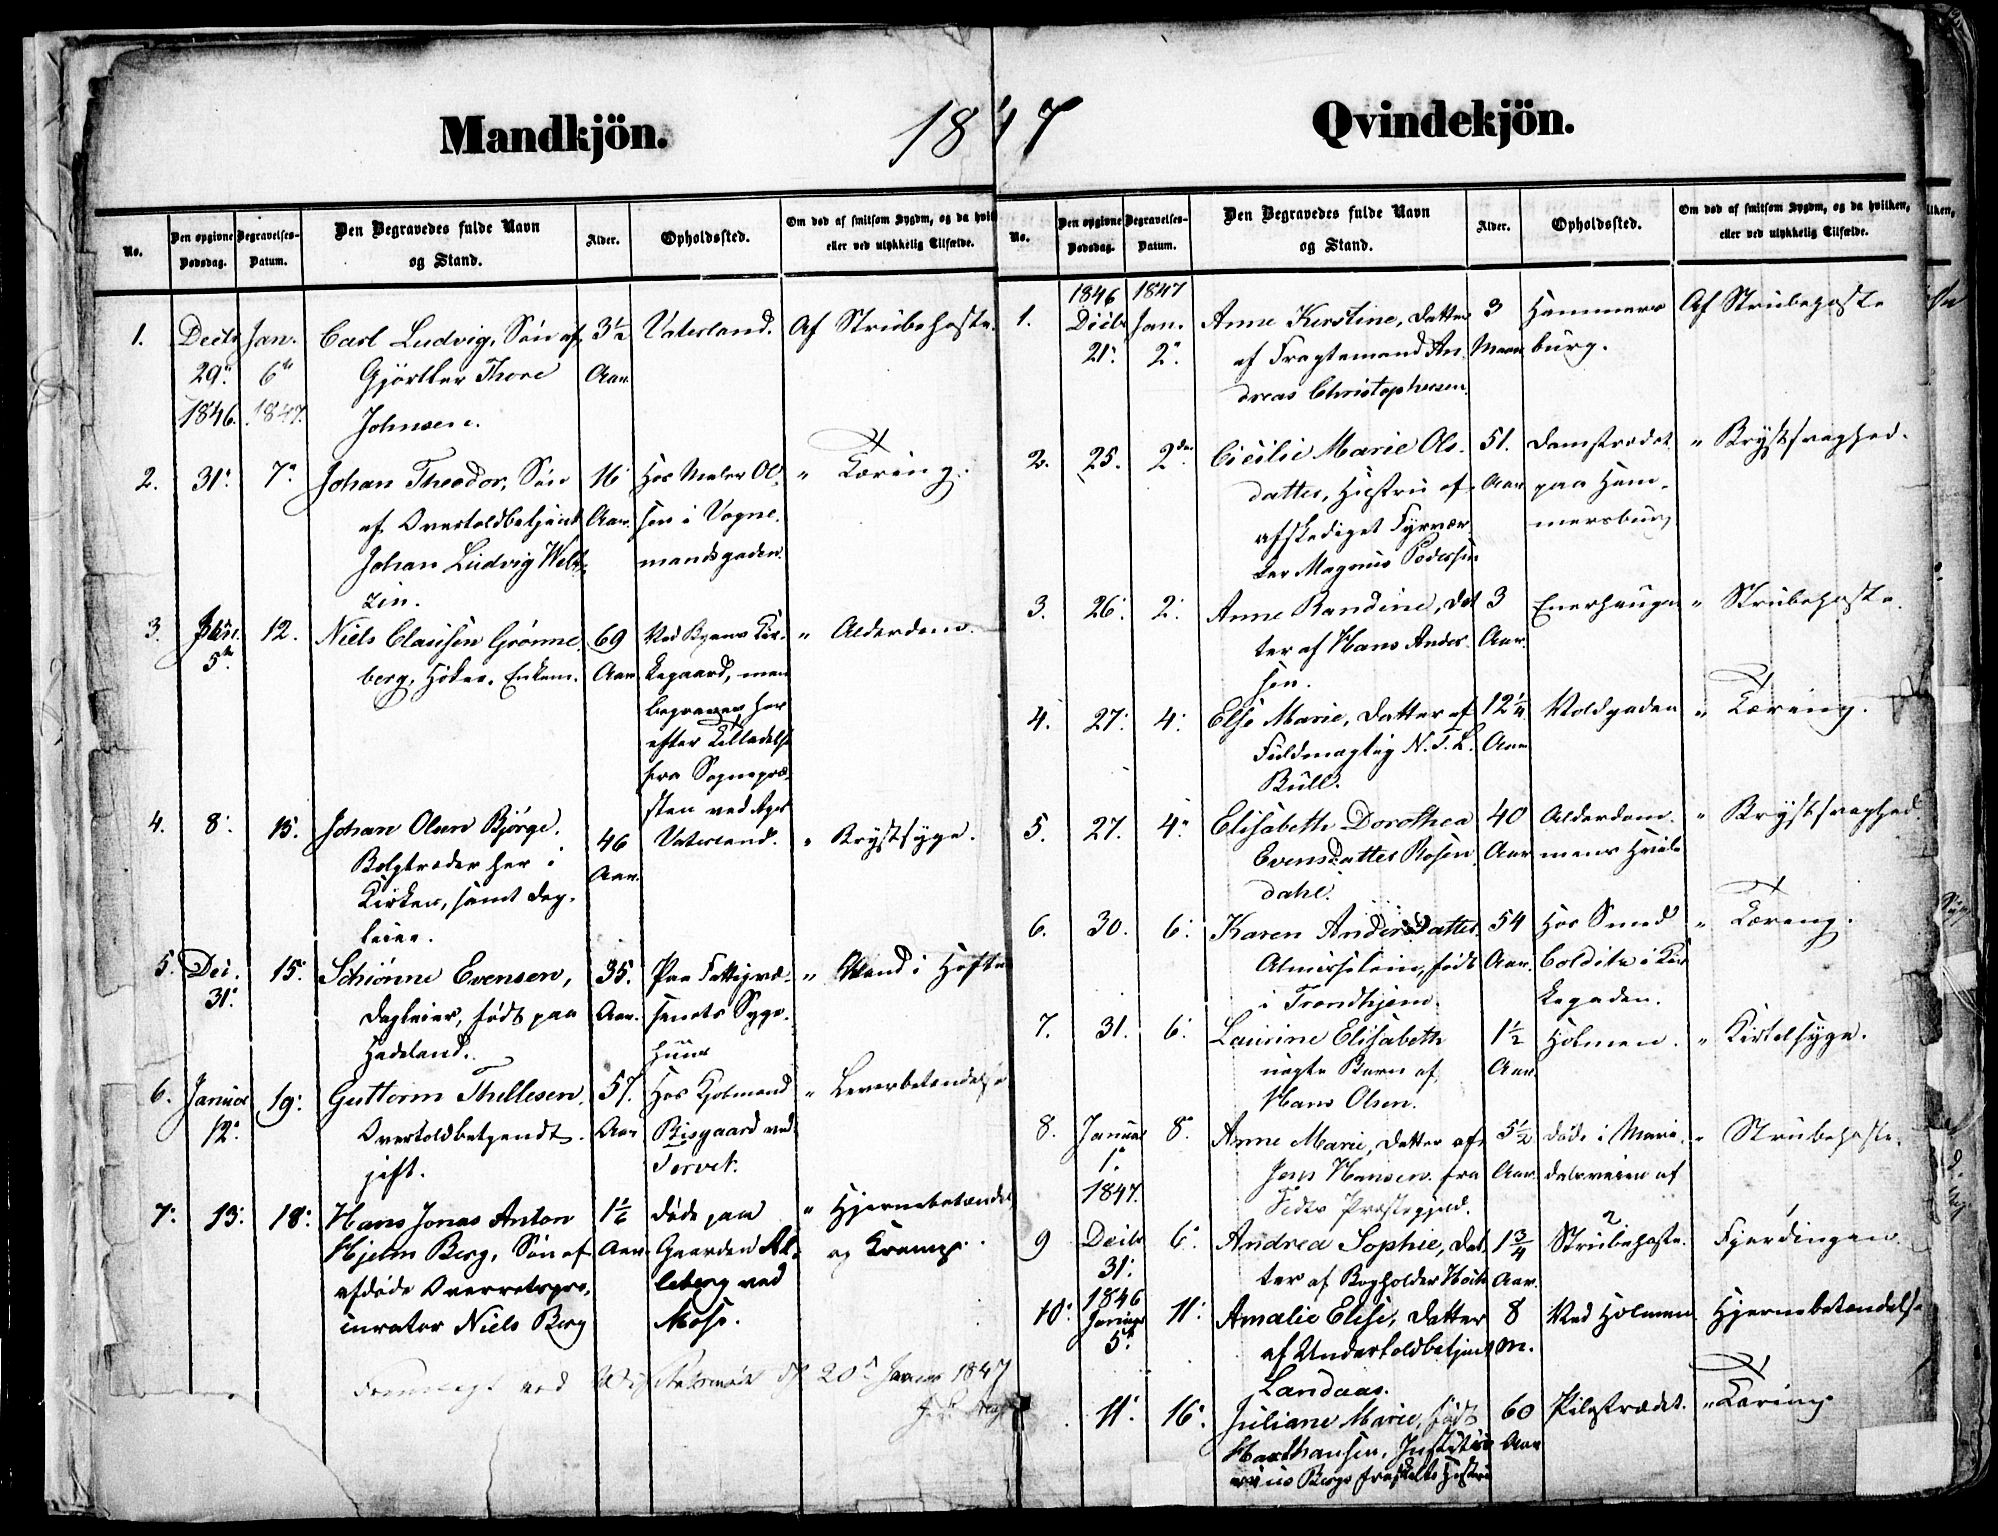 Mandkjön.
1847
Qvindekjön.
No.
Den opgivne
Dødsdag.
Begravelses-
Datum.
Den Begravedes fulde Navn
og Stand.
Alder.
Opholdssted.
Om død af smitsom Sygdm, og da hvil
eller ved ulykkelig Tilfælde.
1.
Decbr
29.
1846.
Jan.
6te
1847.
Carl Ludvig, Søn af
Gjørtler Thore
Johnsen.
3½
Aar
Vaterland.
Af Strubehoste.
2.
31.
7.
Johan Theodor, Søn
af Overtoldbetjent
Johan Ludvig Welt-
zin.
16
Aar.
Hos Maler Ol-
sen i Vogn-
mandsgaden.
" Tæring.
3.
Jan.
5te
12.
Niels Clausen Grønne-
berg, Enkem.
69
Aar
Ved Byens Kir-
kegaard, men
begraves her
efter Tilladelse
fra Sognepræ-
sten ved Ager
" Alderdom.
4.
8.
15.
Johan Olsen Bjørge.
Belgtræder her i
Kirken, samt Dag-
leier.
46
Aar.
Vaterland.
" Brystsyge.
5.
Dec.
31.
15.
Schiønne Evensen,
Dagleier, født paa
Hadeland.
35.
Aar.
Paa Fattigvæ-
senets Syge-
huus
" i Hofte
6.
Januar
12.
19.
Guttorm Thellesen.
Overtoldbetjendt.
gift.
57.
Aar
Hos Kjøbmand
Bisgaard ved
Torvet.
" Leverbetændelse
7.
13.
18.
Hans Jonas Anton
Hjelm Berg, Søn af
afdøde Overretspro-
curator Niels Berg
1½
Aar
Døde paa
Gaarden Al-
leberg ved
Moss.
" Hjernebetændel
og Krampe.
ved 20d Januar 1847
No.
Den opgivne
Dødsdag.
Begravelses-
Datum.
Den Begravedes fulde Navn
og Stand.
Alder.
Opholdssted.
Om død af smitsom Sygdm, og da hvilken,
eller ved ulykkelig Tilfælde.
1.
1846
Decbr
21.
1847
Jan.
2.
Anne Kirstine, Datter
af Fragtemand An-
dreas Christophersen.
3
Maan
Hammers
burg.
Af Strubehoste
2.
25.
2den
Cicilie Marie Ols-
datter, Hustru af
afskediget Fyrvær-
ker Magnus Pedersen
51.
Aar
Damstrædet
paa Ham-
mersburg
" Brystsvaghed.
3.
26.
2.
Anne Randine, Dat-
ter af Hans Ander-
sen.
3
Aar.
Enerhaugen
" Strubehoste.
4.
27.
4.
Else Marie, Datter af
Fuldmægtig N. T. L.
Bull.
12¼
Aar
Voldgaden
" Tæring.
5.
27.
4.
Elisabeth Dorothea
Evensdatter Rosen-
dahl.
40
Aar
Alderdom-
mens Hvile
" Brystsvaghed.
6.
30.
6.
Karen Andersdatter
født
i Trondhjem.
54
Aar.
Hos Smed
Colditz i Kir-
kegaden.
" Tæring.
7.
31.
6.
Laurine Elisabeth
uægte Barn af
Hans Olsen.
1½
Aar.
Holmen.
" Kirtelsyge.
8.
Januar
1.
1847.
8.
Anne Marie, Datter af
Jens Hansen fra
Præstegjæld.
5½
Aar.
Døde i Mari-
dalsveien af
" Strubehoste.
9
Decbr
31.
1846
6.
Andrea Sophie, Dat-
ter af Bogholder
1¾
Aar.
Strubehoste.
Fjerdingen.
10.
Januar
5te
11.
Amalie Elise, Datter
af Undertoldbetjent
Landaas.
8
M.
Ved Holmen
Hjernebetændelse
11.
16.
Juliane Marie, født
Haxthausen,
Bergs fraskilte Hustru
60
Aar
Pilestrædet.
" Tæring